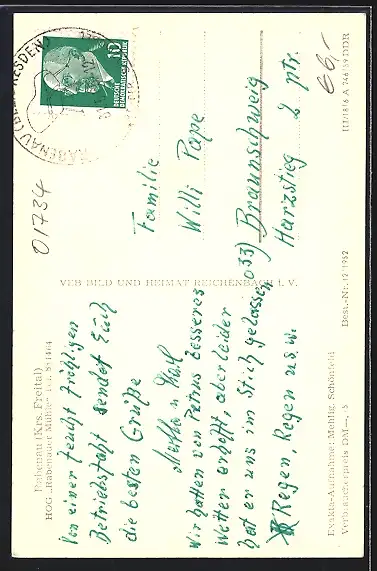 Rabenau (Krs. Freital)
HOG „Rabenauer Mühle"
Von einer feucht fröhligen
Betriebsfahrt sendet Euch
die besten Grüße
Martha u. Karl
Wir hatten von Petrus besseres
Wetter erhofft, aber leider
hat er uns im Stich gelassen
Regen, Regen usw.
VEB BILD UND HEIMAT REICHENBACH I. V.
RABENAU (BEZ. DRESDEN)
10
DEUTSCHE
DEMOKRATISCHE REPUBLIK
01734
Familie
Willi Pape
033) Braunschweig
Harzstieg 2 ptr.
66,-
Exakta-Aufnahme: Mehlig, Schönfeld
Verbraucherpreis DM
Best.-Nr. 12/1962
III/18/6 A 746/59 DDR